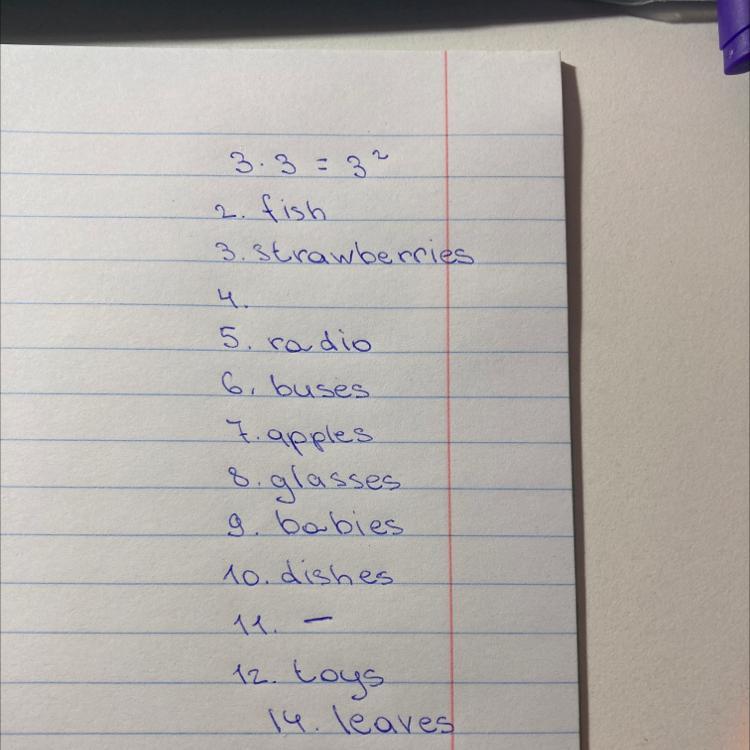 3. 3 = 3²
2. fish
3. strawberries
4.
5. radio
6. buses
7. apples
8. glasses
9. babies
10. dishes
11. –
12. toys
14. leaves